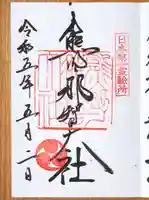 日本第一霊験所
熊野那智大社
令和五年五月二日